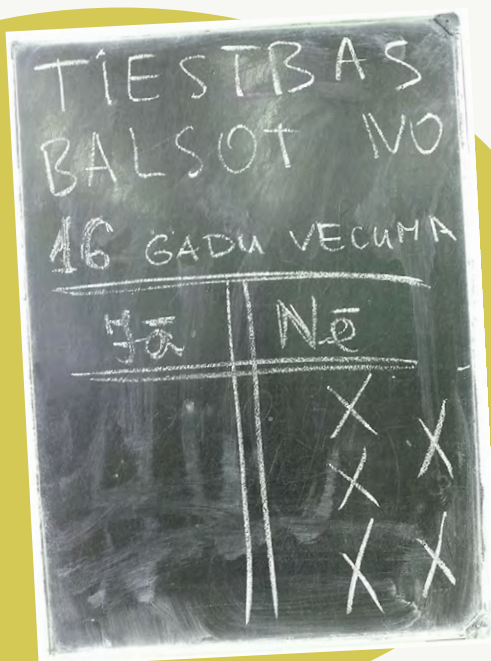 TIESTBAS
BALSOT NO
16 GADU VECUMA
Jā Nē
X
X
X
X
X